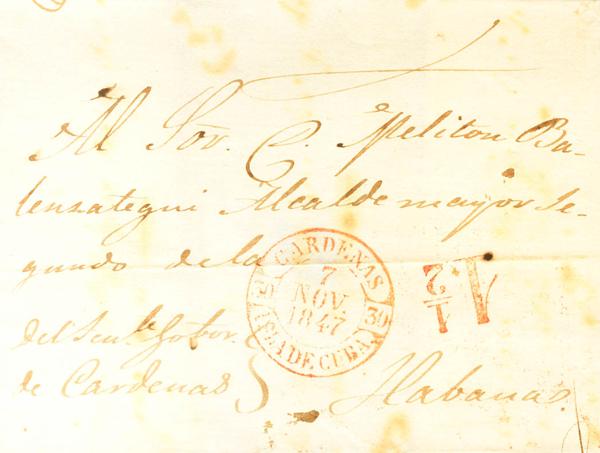 Al Sor. C. Meliton Ba-
lenzategui Alcalde mayor Se-
gundo de la
CARDENAS
7
NOV.
1847
39
ISLA DE CUBA
1 1/2
del Ten.te Gobor.
de Cardenas
Habana.